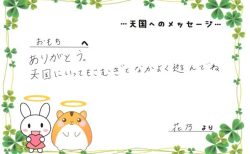 …天国へのメッセージ…
おもち へ
ありがとう。
天国にいってもこむぎとなかよく遊んでね
花乃 より